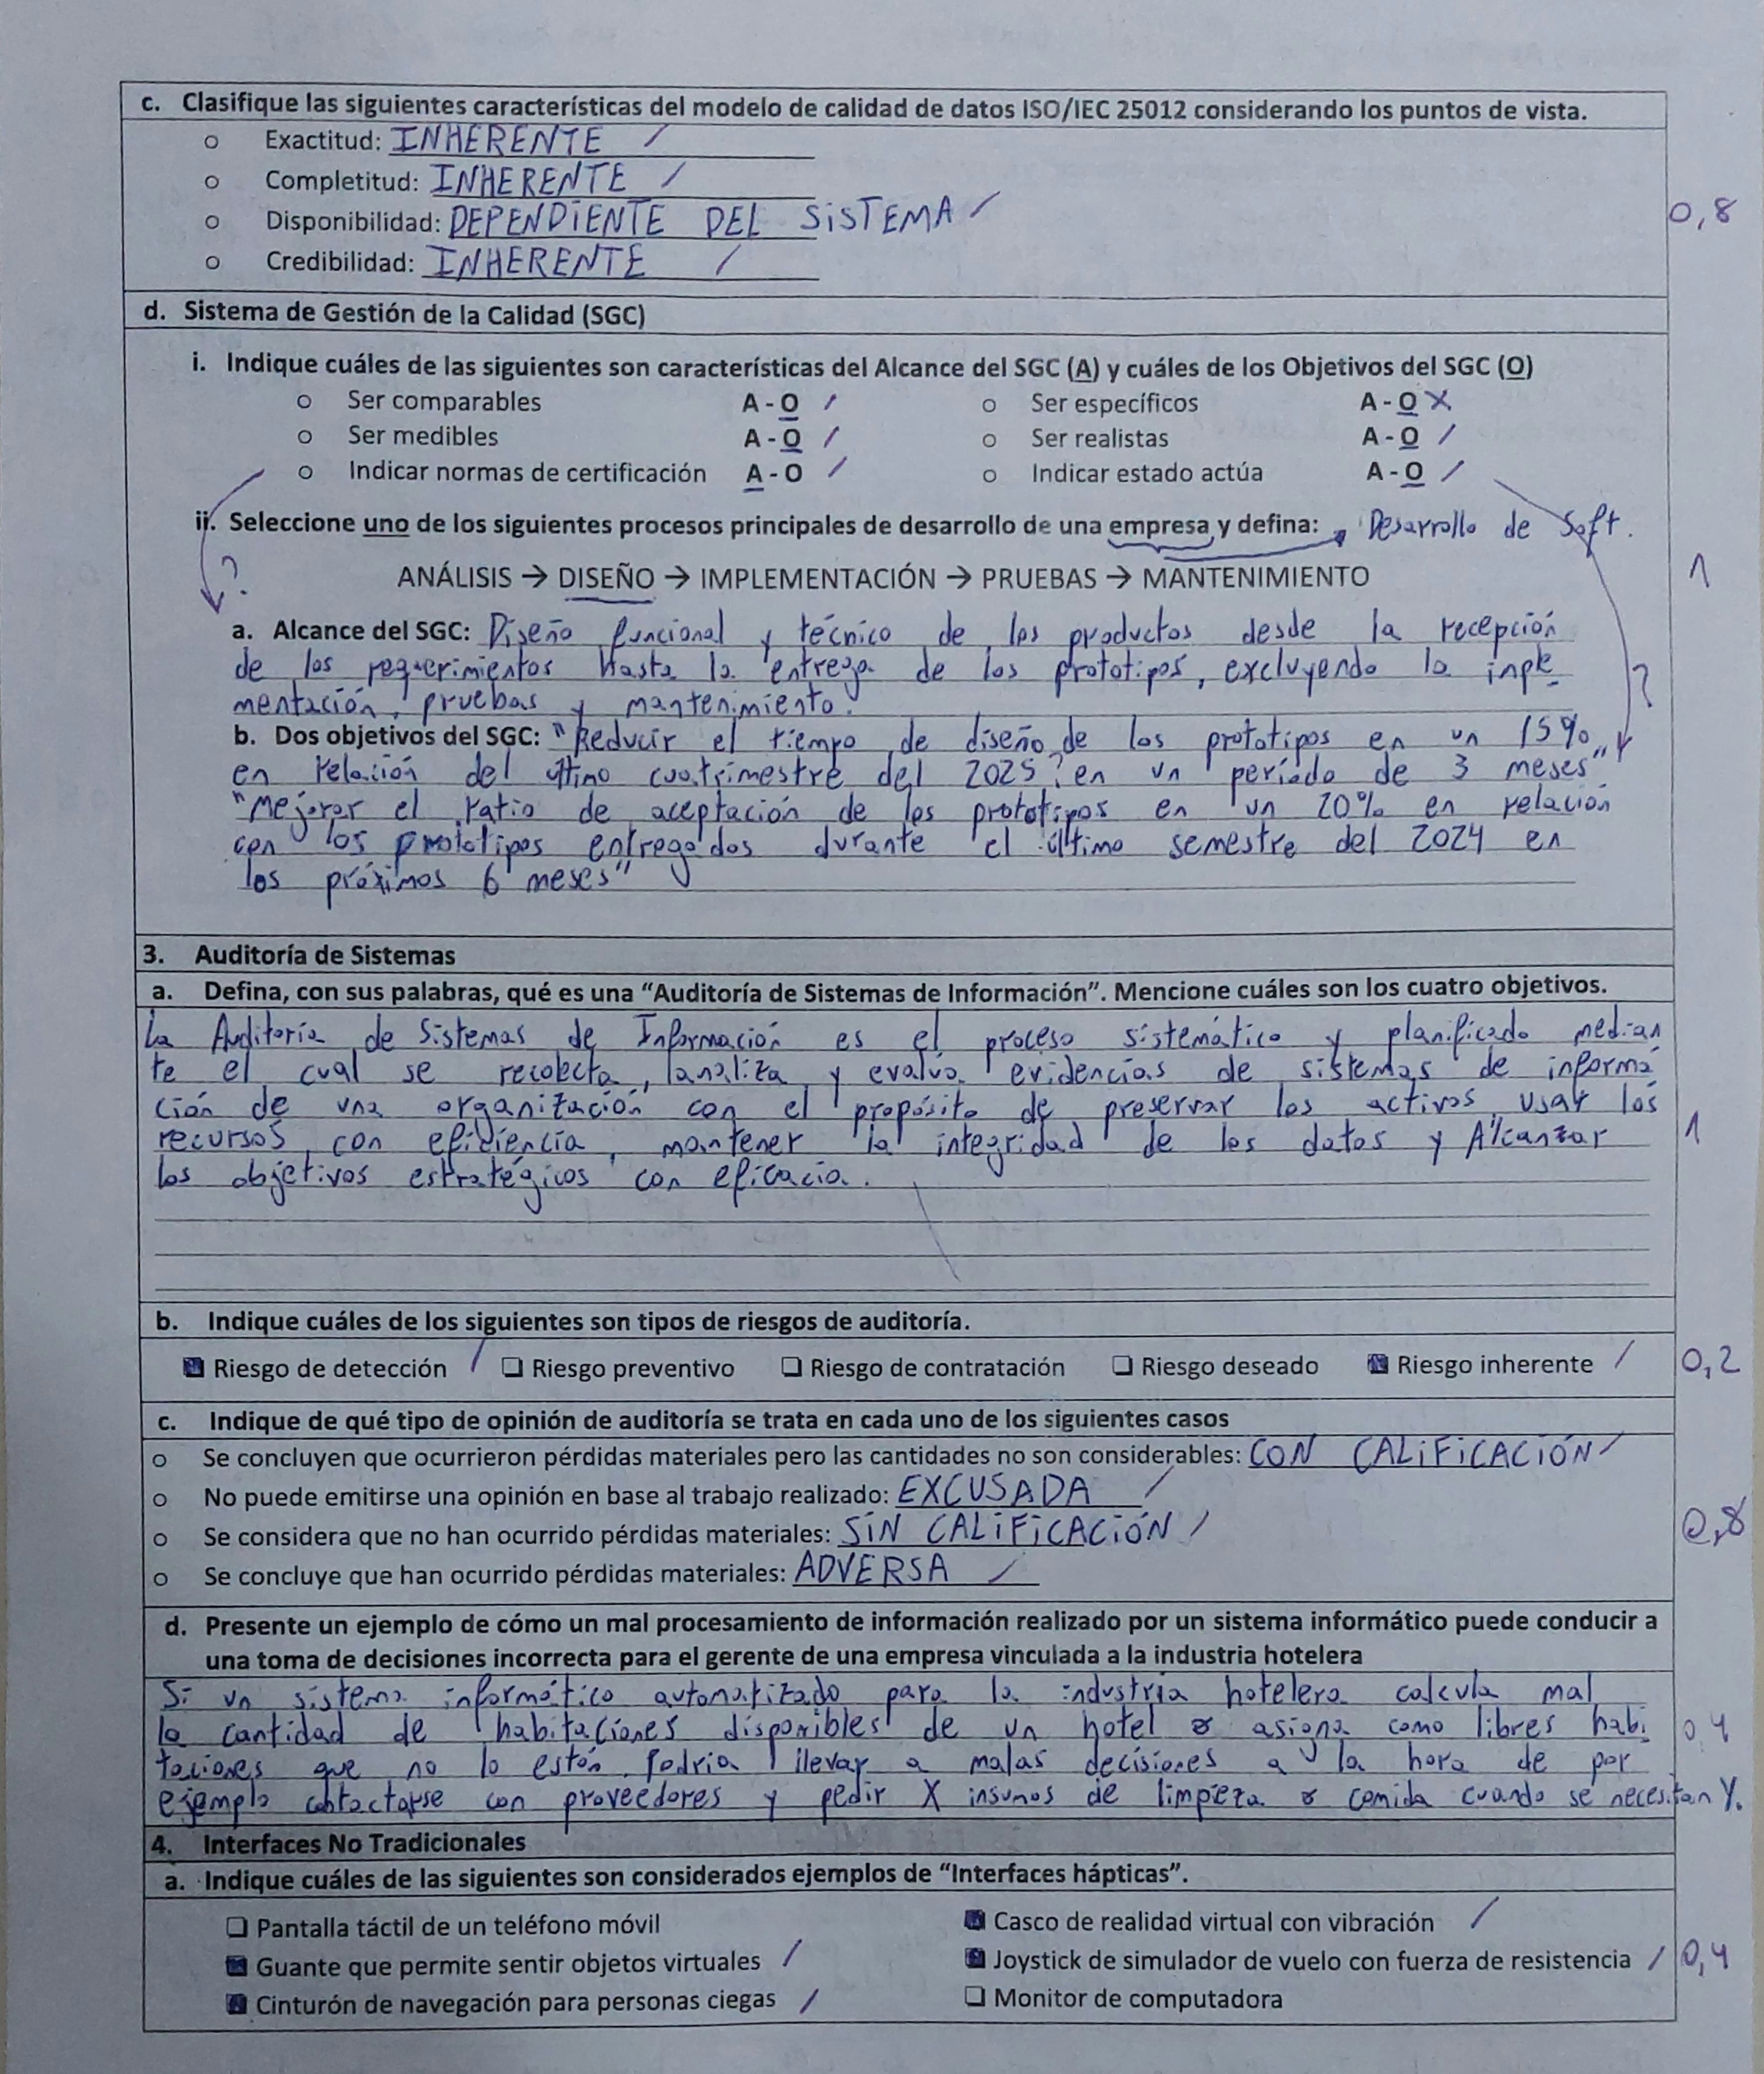 c. Clasifique las siguientes características del modelo de calidad de datos ISO/IEC 25012 considerando los puntos de vista.
o Exactitud: INHERENTE /
o Completitud: INHERENTE /
o Disponibilidad: DEPENDIENTE DEL SISTEMA /
0,8
o Credibilidad: INHERENTE /
d. Sistema de Gestión de la Calidad (SGC)
i. Indique cuáles de las siguientes son características del Alcance del SGC (A) y cuáles de los Objetivos del SGC (O)
o Ser comparables A - O / o Ser específicos A - O X
o Ser medibles A - O / o Ser realistas A - O /
o Indicar normas de certificación A - O / o Indicar estado actúa A - O /
ii. Seleccione uno de los siguientes procesos principales de desarrollo de una empresa y defina: Desarrollo de Soft.
ANÁLISIS → DISEÑO → IMPLEMENTACIÓN → PRUEBAS → MANTENIMIENTO
1
?
a. Alcance del SGC: Diseño funcional y técnico de los productos desde la recepción
de los requerimientos hasta la entrega de los prototipos, excluyendo la inple
mentación, pruebas y mantenimiento.
?
b. Dos objetivos del SGC: "Reducir el tiempo de diseño de los prototipos en un 15%
en relación del último cuatrimestre del 2025 en un período de 3 meses"
"Mejorar el ratio de aceptación de los prototipos en un 20% en relación
con los prototipos entregados durante el último semestre del 2024 en
los próximos 6 meses"
3. Auditoría de Sistemas
a. Defina, con sus palabras, qué es una “Auditoría de Sistemas de Información”. Mencione cuáles son los cuatro objetivos.
La Auditoría de Sistemas de Información es el proceso sistemático y planificado median
te el cual se recolecta, analiza y evalúa evidencias de sistemas de informa
ción de una organización con el propósito de preservar los activos, usar los
recursos con eficiencia, mantener la integridad de los datos y Alcanzar
1
los objetivos estratégicos con eficacia.
b. Indique cuáles de los siguientes son tipos de riesgos de auditoría.
Riesgo de detección / Riesgo preventivo Riesgo de contratación Riesgo deseado Riesgo inherente / 0,2
c. Indique de qué tipo de opinión de auditoría se trata en cada uno de los siguientes casos
o Se concluyen que ocurrieron pérdidas materiales pero las cantidades no son considerables: CON CALIFICACIÓN /
o No puede emitirse una opinión en base al trabajo realizado: EXCUSADA /
0,8
o Se considera que no han ocurrido pérdidas materiales: SIN CALIFICACIÓN /
o Se concluye que han ocurrido pérdidas materiales: ADVERSA /
d. Presente un ejemplo de cómo un mal procesamiento de información realizado por un sistema informático puede conducir a
una toma de decisiones incorrecta para el gerente de una empresa vinculada a la industria hotelera
Si un sistema informático automatizado para la industria hotelera calcula mal
la cantidad de habitaciones disponibles de un hotel o asigna como libres habi
0,4
taciones que no lo están, Podría llevar a malas decisiones a la hora de por
ejemplo cobtactarse con proveedores y pedir X insumos de limpieza o comida cuando se necesitan Y.
4. Interfaces No Tradicionales
a. Indique cuáles de las siguientes son considerados ejemplos de “Interfaces hápticas”.
Pantalla táctil de un teléfono móvil Casco de realidad virtual con vibración /
Guante que permite sentir objetos virtuales / Joystick de simulador de vuelo con fuerza de resistencia / 0,4
Cinturón de navegación para personas ciegas / Monitor de computadora